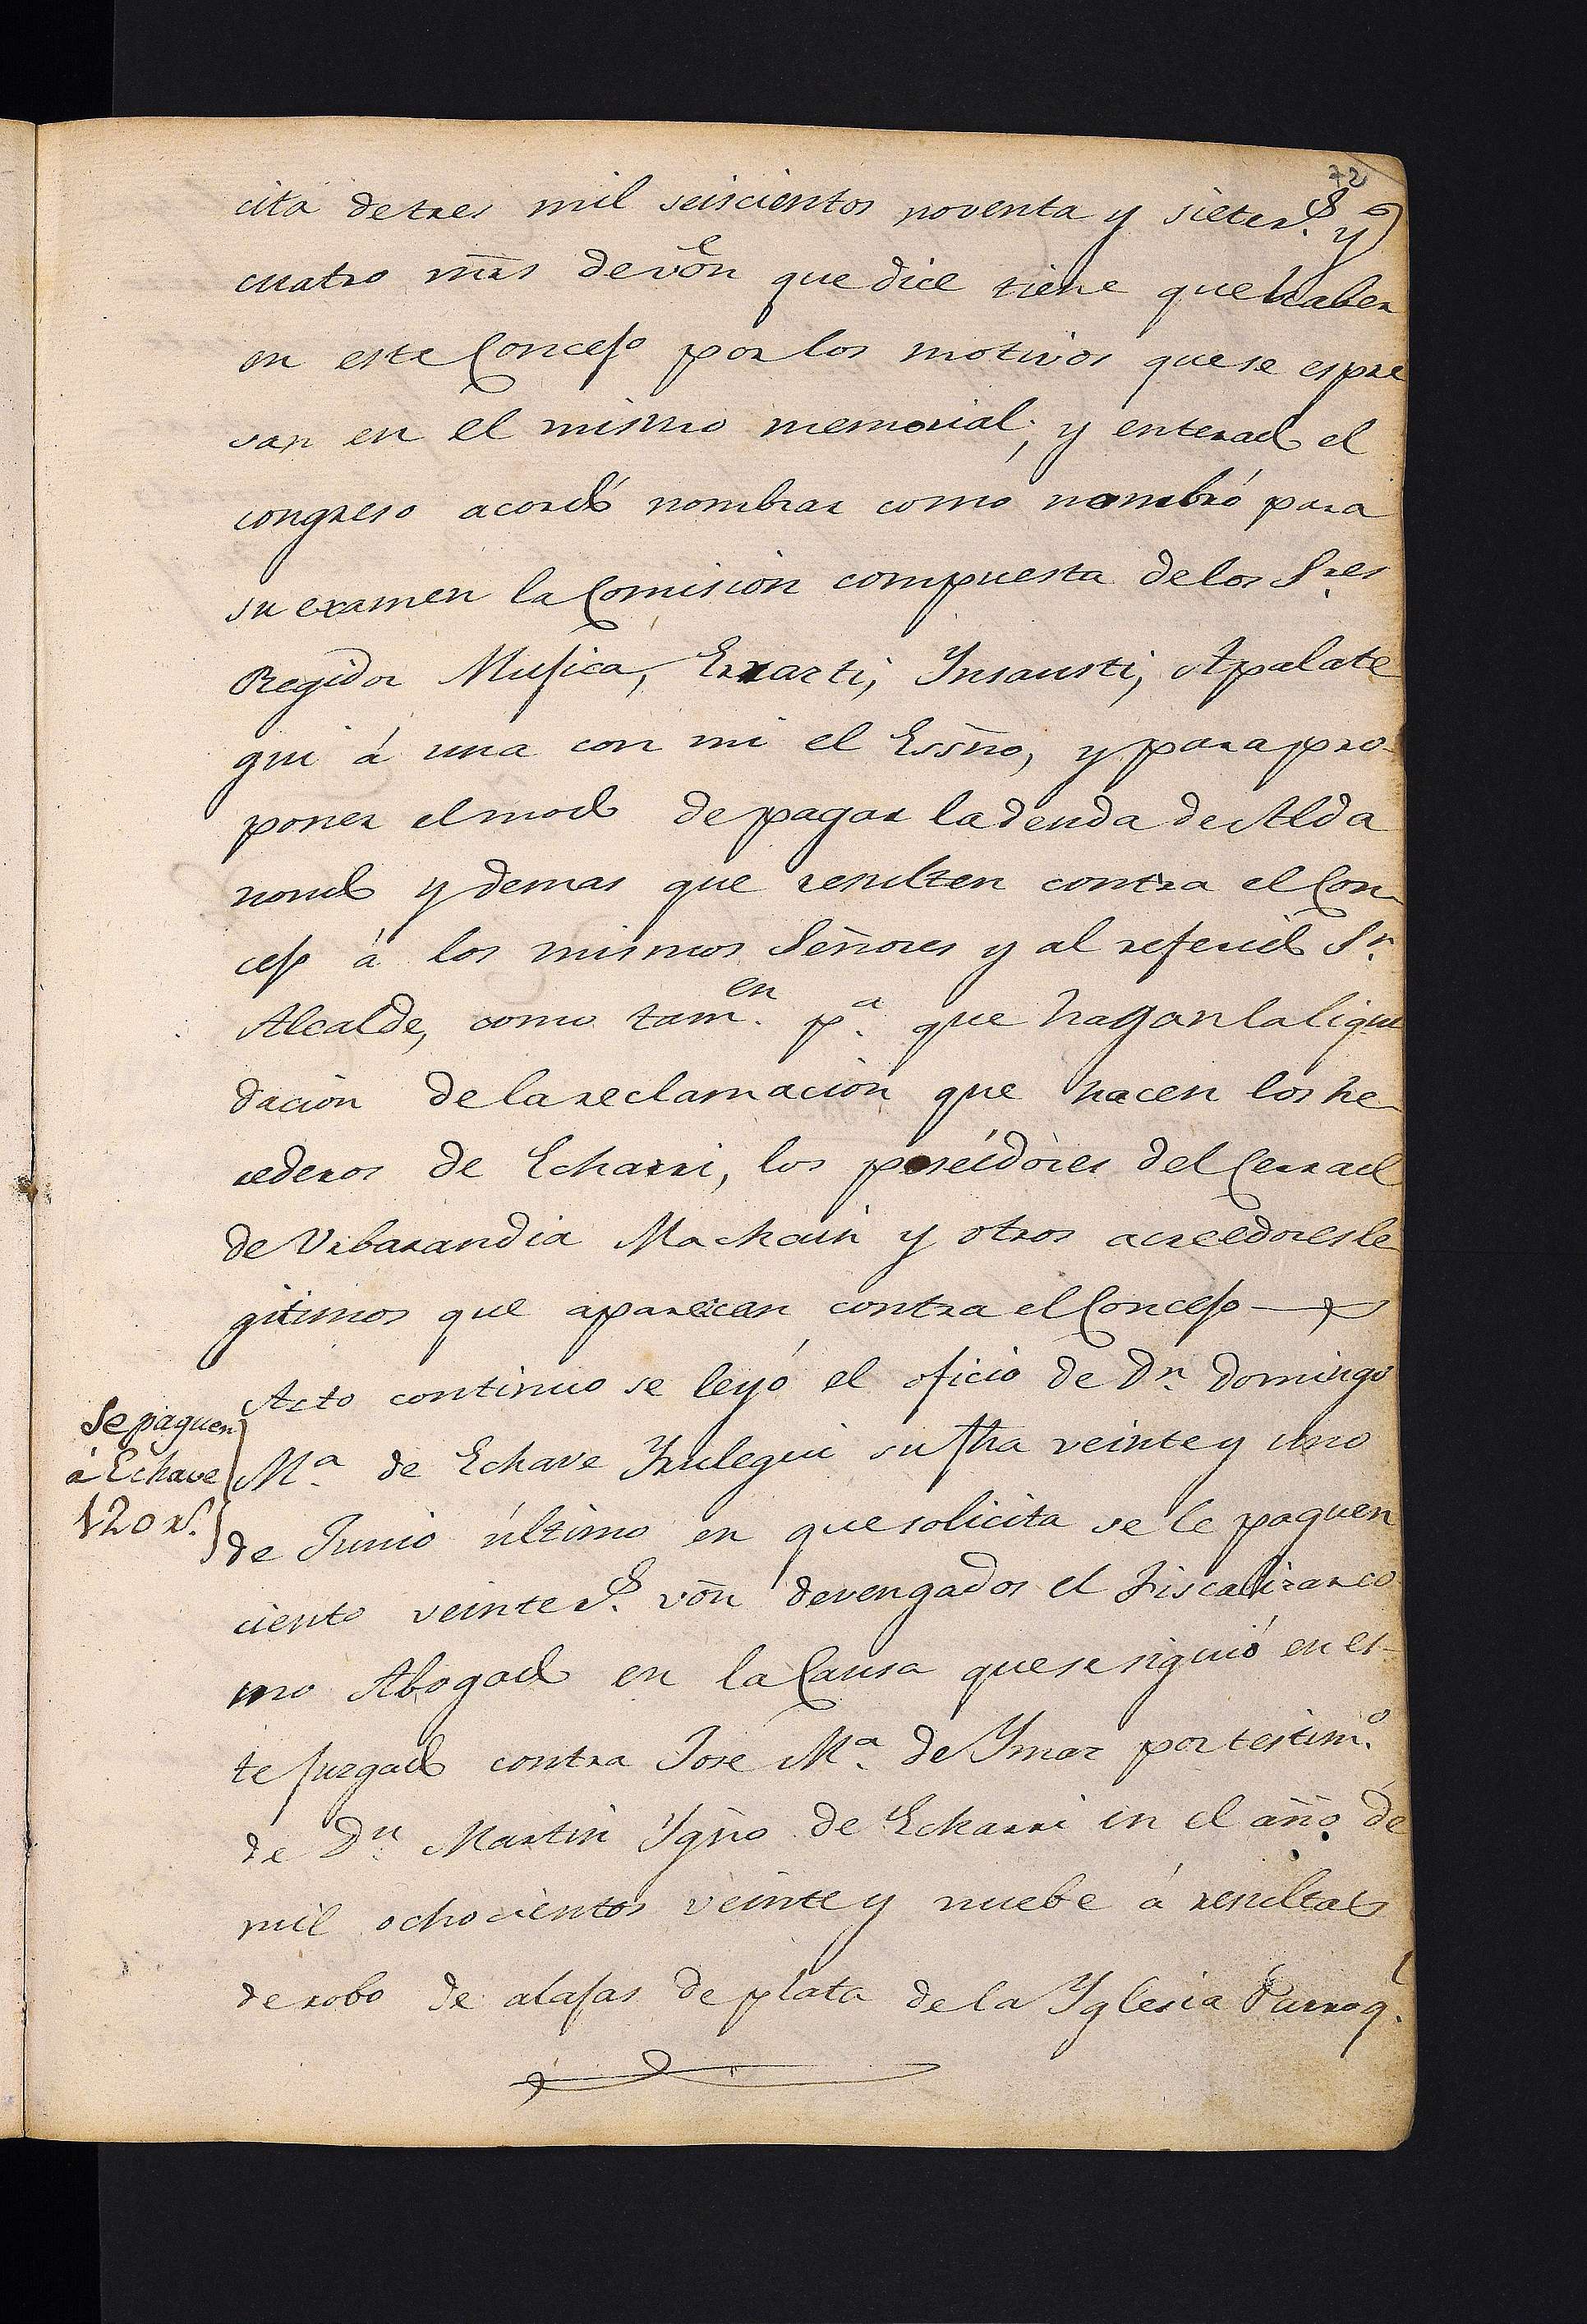 72
cita de tres mil seiscientos noventa y siete rs. y
cuatro mrs de von que dice tiene que haber
en este Concejo por los motivos que se espre
san en el mismo memorial; y enterado el
congreso acordó nombrar como nombró para
su examen la Comision compuesta de los Sres
Regidor Mujica, Erzarti, Insausti, Apalate
gui á una con mi el Essno, y para pro-
poner el modo de pagar la deuda de Alda
nondo y demas que resulten contra el Con-
cejo á los mismos Señores y al referido Sr.
Alcalde, como tamen. pa. que hagan la liqui
dacion de la reclamacion que hacen los he-
rederos de Echarri, los poseidores del Cerrado
de Urbarandia Machain y otros acreedores le-
gitimos que aparezcan contra el Concejo
Acto continuo se leyó el oficio de Dn. Domingo
Se paguen
á Echave
120 rs.
Ma. de Echave Yrulegui su fha veinte y uno
de Junio último en que solicita se le paguen
ciento veinte rs. von devengados el Fiscalizar co
mo Abogado en la Causa que se siguió en es-
te juzgado contra Jose Ma. de Ymaz por testimo.
de Dn Martin Ygno de Echarri en el año de
mil ochocientos veinte y nuebe á resultas
de robo de alajas de plata de la Yglesia Parroql.